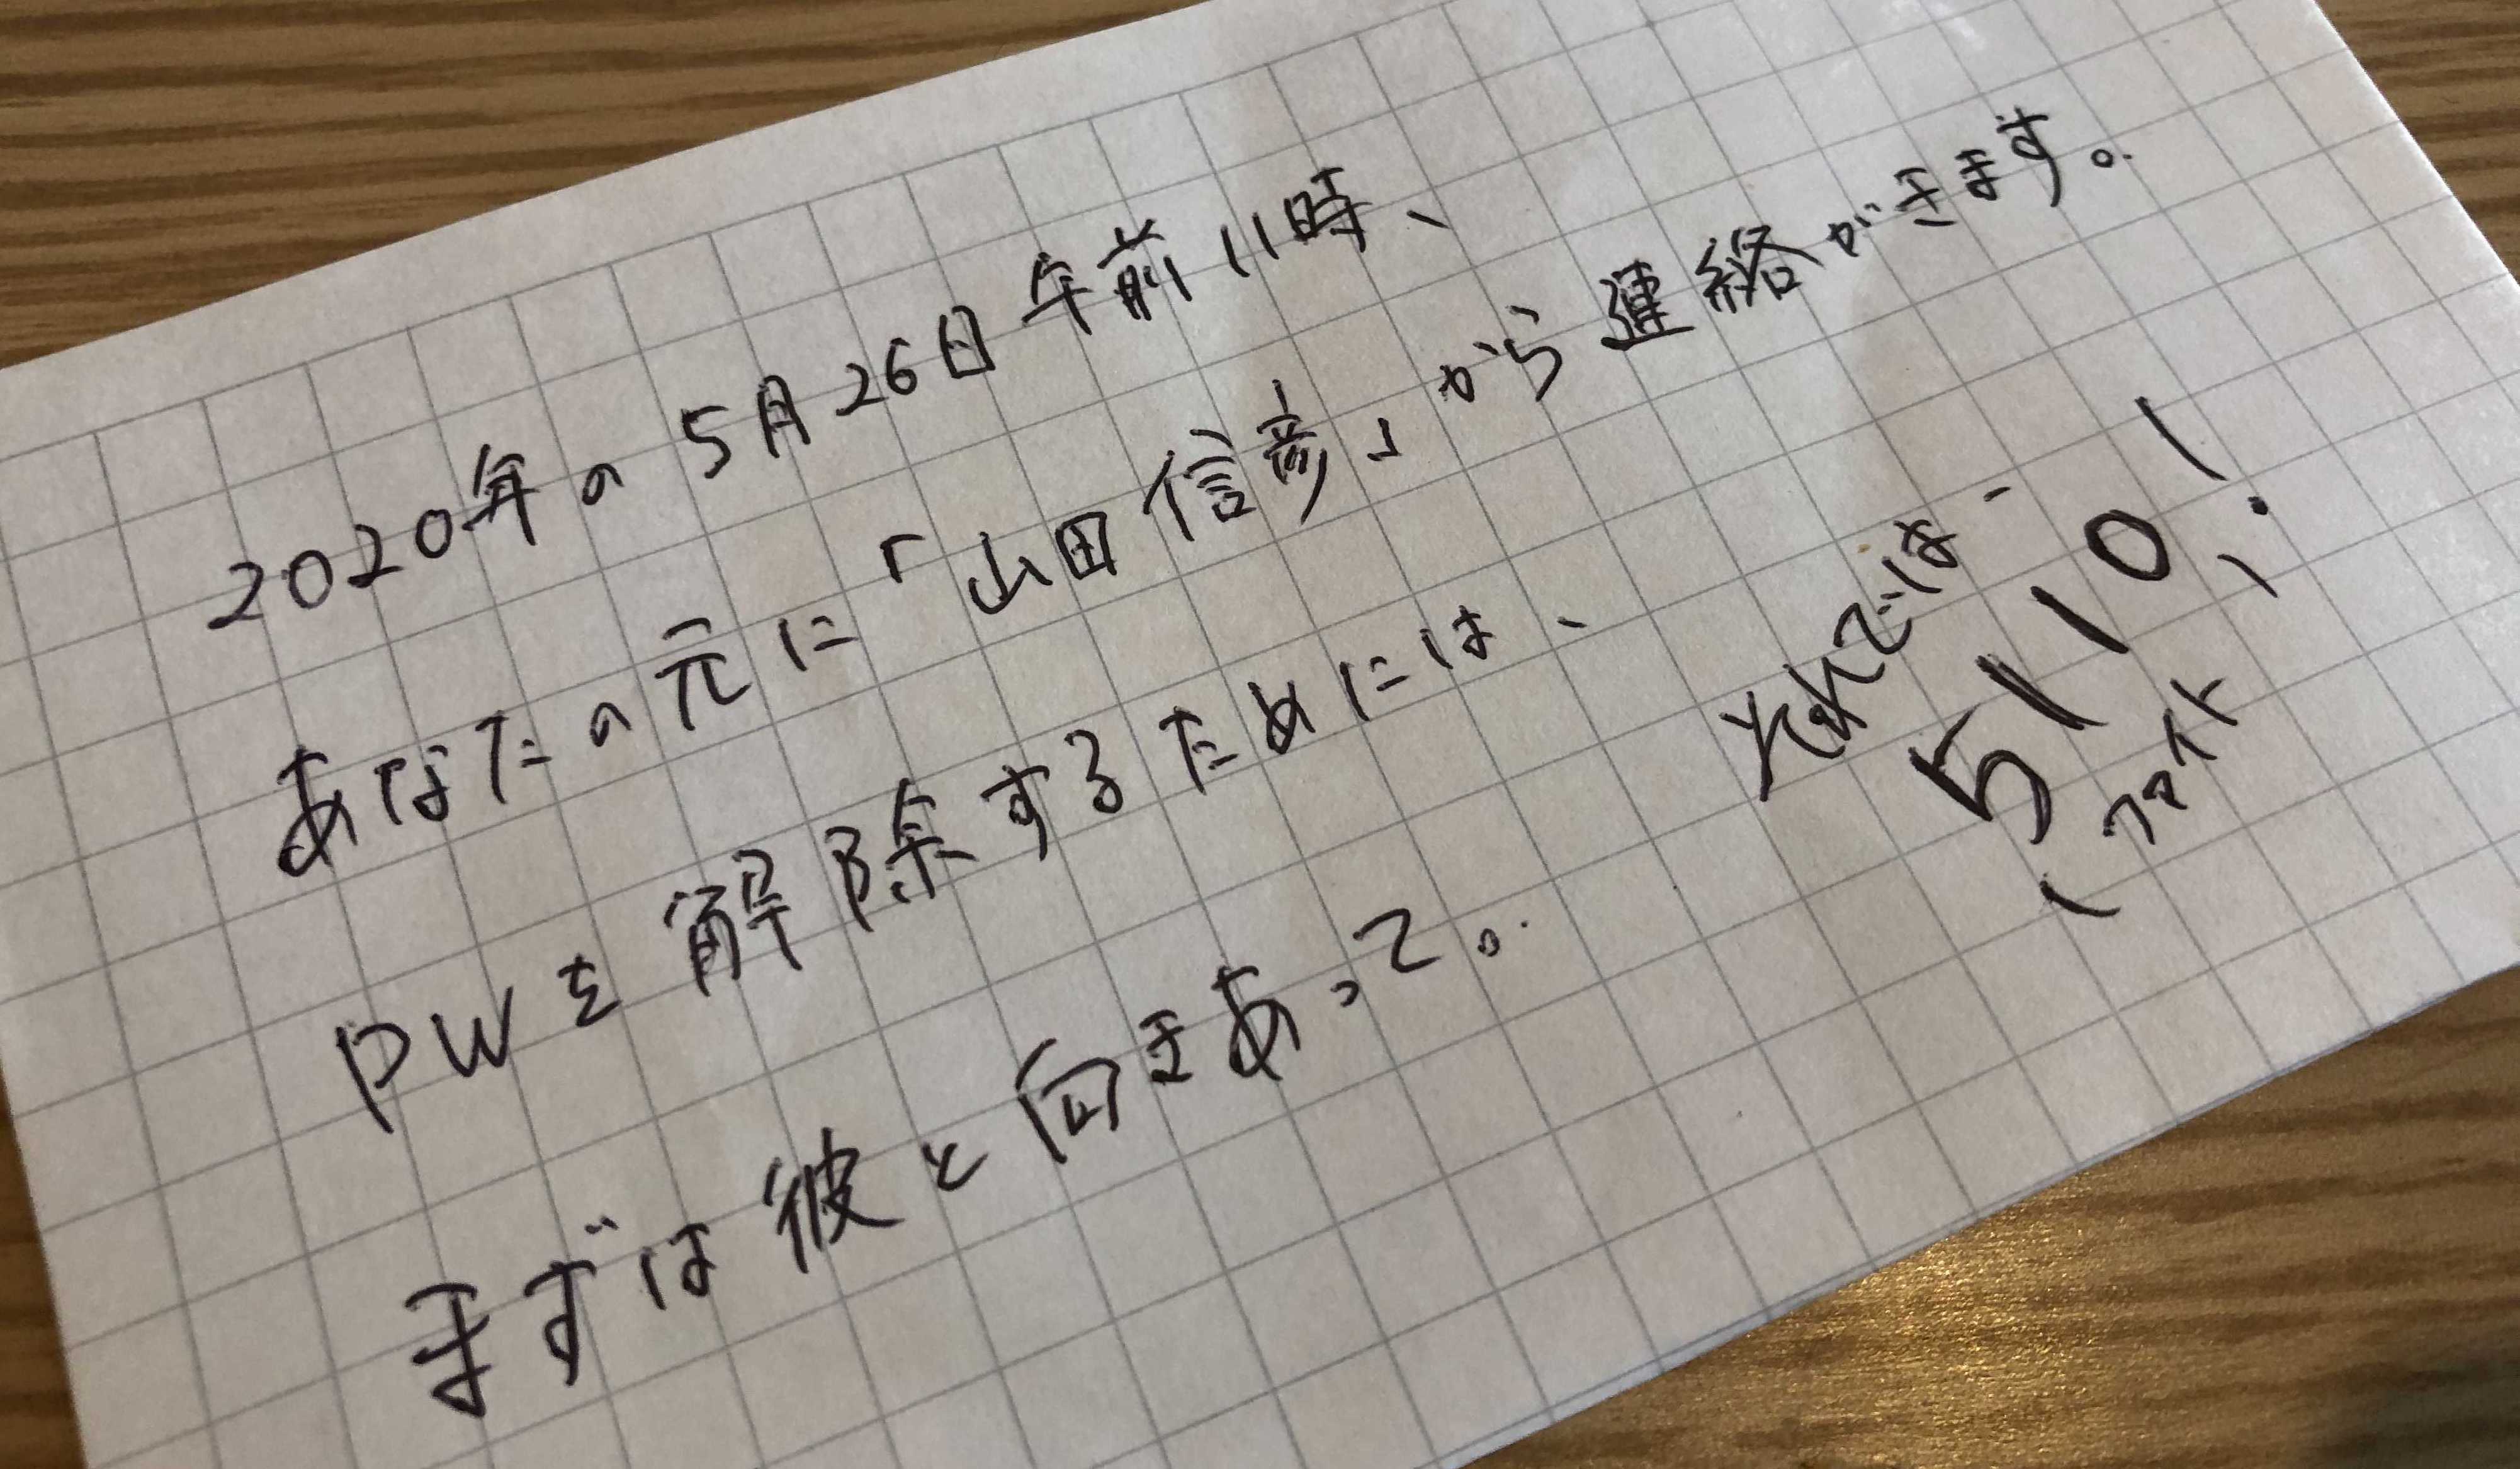 2020年の5月26日午前11時、
あなたの元に「山田信彦」から連絡がきます。
PWを解除するためには、
まずは彼と向きあって。
それではー
5110!
(ファイト)